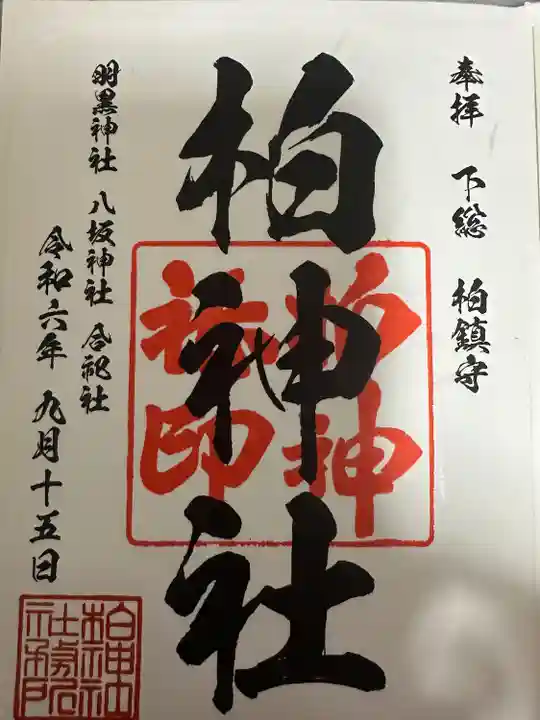 奉拝 下総 柏鎮守
柏神社
柏神
社印
羽黒神社 八坂神社 合祀社
令和六年 九月十五日
柏神社
社務所印